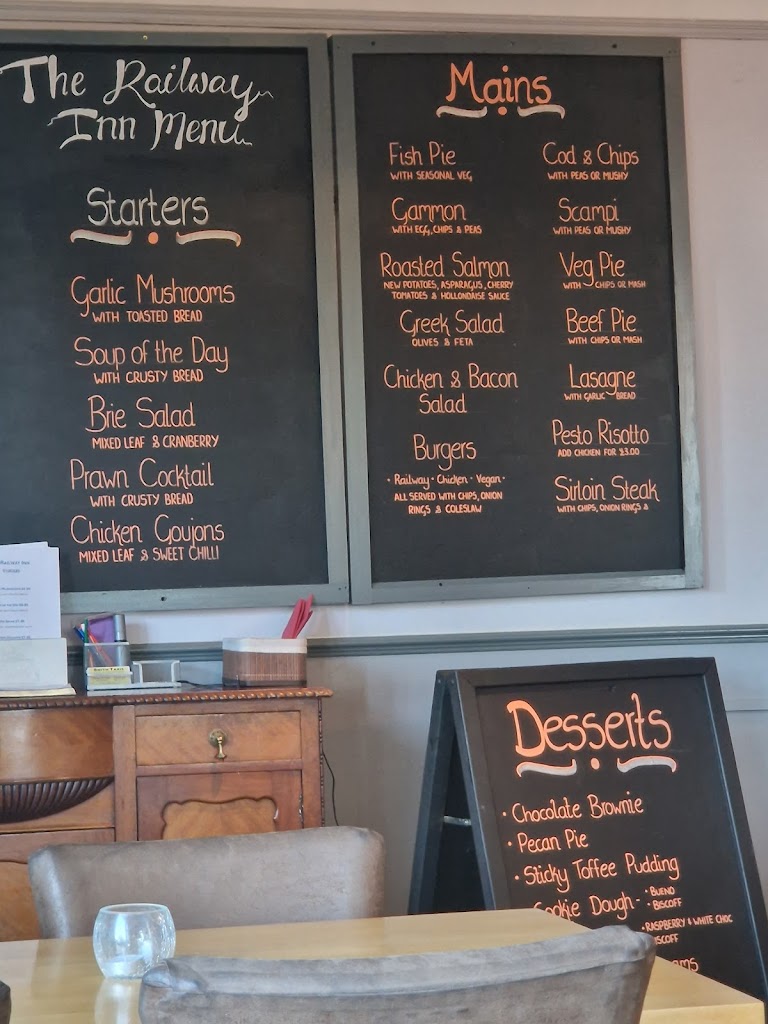 The Railway
Inn Menu
Starters
Garlic Mushrooms
WITH TOASTED BREAD
Soup of the Day
WITH CRUSTY BREAD
Brie Salad
MIXED LEAF & CRANBERRY
Prawn Cocktail
WITH CRUSTY BREAD
Chicken Goujons
MIXED LEAF & SWEET CHILLI
Mains
Fish Pie
WITH SEASONAL VEG
Gammon
WITH EGG, CHIPS & PEAS
Roasted Salmon
NEW POTATOES, ASPARAGUS, CHERRY
TOMATOES & HOLLONDAISE SAUCE
Greek Salad
OLIVES & FETA
Chicken & Bacon
Salad
Burgers
· Railway · Chicken · Vegan ·
ALL SERVED WITH CHIPS, ONION
RINGS & COLESLAW
Cod & Chips
WITH PEAS OR MUSHY
Scampi
WITH PEAS OR MUSHY
Veg Pie
WITH CHIPS OR MASH
Beef Pie
WITH CHIPS OR MASH
Lasagne
WITH GARLIC BREAD
Pesto Risotto
ADD CHICKEN FOR £3.00
Sirloin Steak
WITH CHIPS, ONION RINGS &
Desserts
· Chocolate Brownie
· Pecan Pie
· Sticky Toffee Pudding
Cookie Dough - · BUENO
· BISCOFF
· RASPBERRY & WHITE CHOC